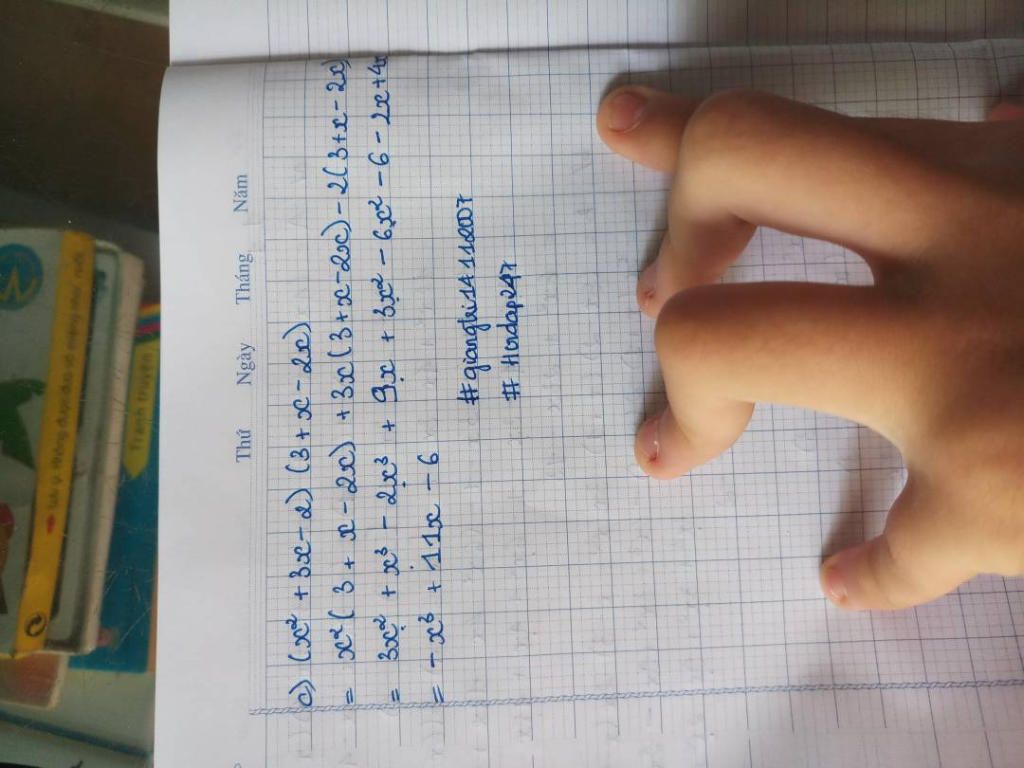 Thứ Ngày Tháng Năm
c) (x² + 3x - 2) (3 + x - 2x)
= x² (3 + x - 2x) + 3x (3 + x - 2x) - 2 (3 + x - 2x)
= 3x² + x³ - 2x³ + 9x + 3x² - 6x² - 6 - 2x + 4x
= - x³ + 11x - 6
#giangbui14112007
# Hoidap247
Tranh truyện